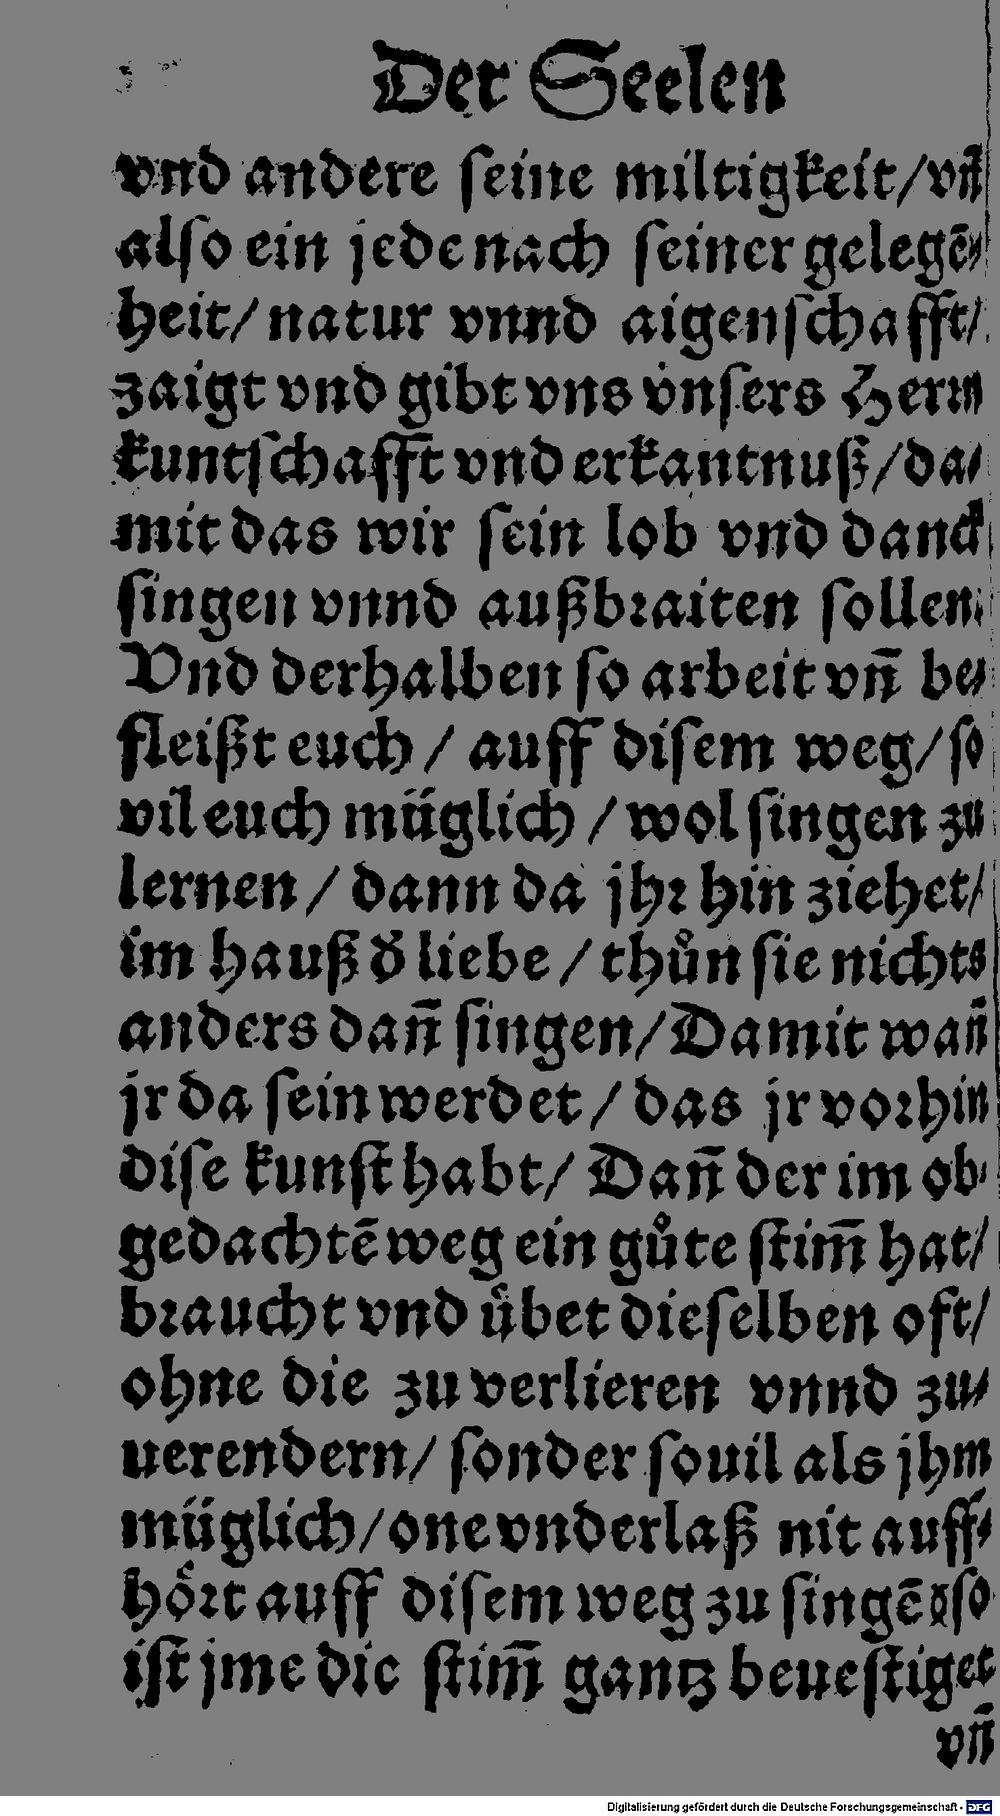 Der Seelen
vnd andere ſeine miltigkeit/ vñ
alſo ein jede nach ſeiner gelegẽ⸗
heit/ natur vnnd aigenſchafft/
zaigt vnd gibt vns vnſers Herrn
kuntſchafft vnd erkantnuß/ da⸗
mit das wir ſein lob vnd danck
ſingen vnnd außbꝛaiten ſollen.
Vnd derhalben ſo arbeit vñ be⸗
fleißt euch / auff diſem weg/ ſo
vil euch müglich / wol ſingen zu
lernen / dann da jhꝛ hin ziehet/
im hauß d̕ liebe / thůn ſie nichts
anders dañ ſingen/ Damit wañ
jr da ſein werdet / das jr voꝛhin
diſe kunſt habt/ Dañ der im ob⸗
gedachtẽ weg ein gůte ſtim̃ hat/
bꝛaucht vnd uͤbet dieſelben oft/
ohne die zu verlieren vnnd zu⸗
uerendern/ ſonder ſouil als jhm
müglich/ one vnderlaß nit auff⸗
hoͤꝛt auff diſem weg zu ſingẽ ſo
iſt jme die ſtim̃ gantz beueſtiget
vñ
Digitalisierung gefördert durch die Deutsche Forschungsgemeinschaft - DFG